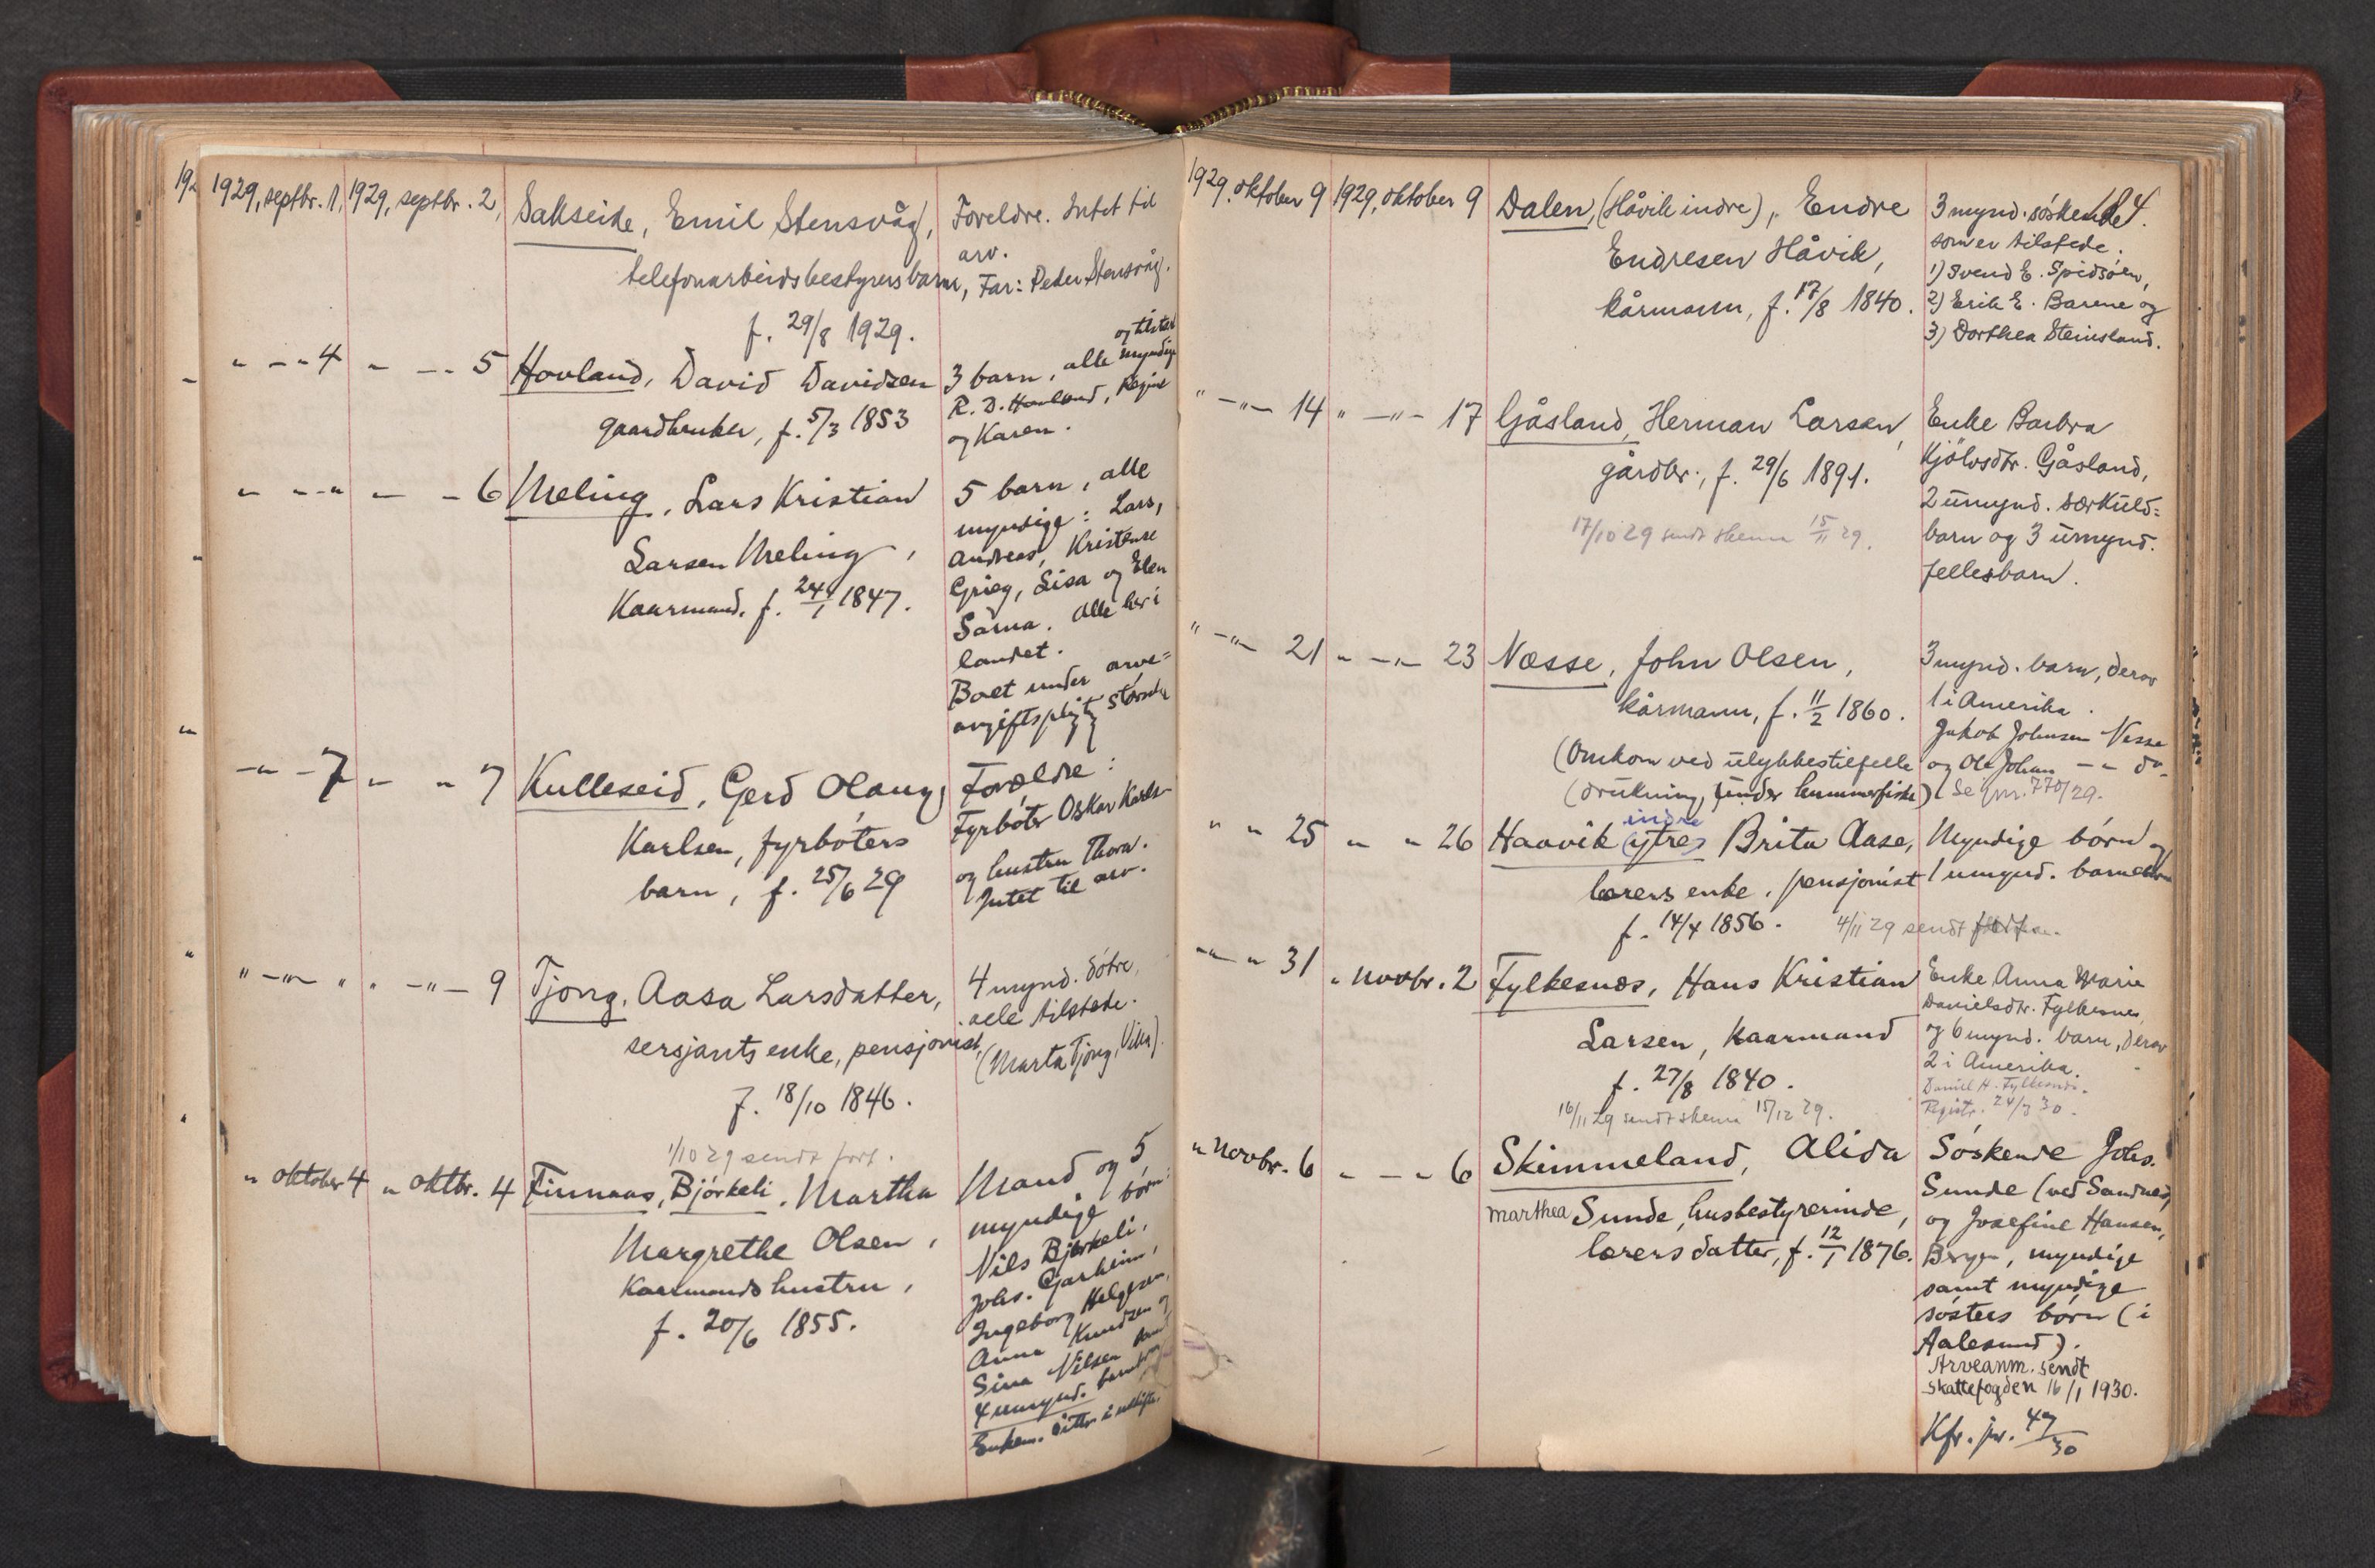 192
1929, septbr. 1, 1929, septbr. 2, Sakseide, Emil Stensvåg, Foreldre. Intet til
arv.
telefonarbeidsbestyrers barn, Far: Peder Stensvåg.
f. 29/8 1929.
" - " - 4 " - - 5 Hovland, David Davidsen 3 barn, alle myndige og tilstede
gaardbruker, f. 5/3 1853 R. D. Hovland, Regine
og Karen.
" " - " - - 6 Meling, Lars Kristian 5 barn, alle
Larsen Meling, myndige: Lars,
Kaarmand. f. 24/1 1847. Andreas, Kristense
Grieg, Lisa og Elen
Sarna. Alle her i
landet.
Boet under arve=
avgiftspligtig størrelse
- " - 7 " " 7 Kulleseid, Gerd Olaug, Forældre:
Karlsen, fyrbøters Fyrbøter Oskar Karlsen
barn, f. 25/6 29 og hustru Thora.
Intet til arv.
" - " - " " - " - 9 Tjong, Aasa Larsdatter, 4 mynd. døtre,
sersjants enke, pensjonist, alle tilstede.
f. 18/10 1846. (Marta Tjong, Vika).
1/10 29 sendt forf.
" oktober 4 " oktbr. 4 Finnaas, Bjørkeli, Martha Mand og 5
Margrethe Olsen, myndige børn:
Kaarmands hustru, Nils Bjørkeli,
f. 20/6 1855. Johs. Gjarheim,
Ingeborg Helgesen,
Anna Knudsen og
Sina Nilsen samt
4 umynd. barnebarn
Enkem. sitter i uskifte.
1929. oktober 9 1929, oktober 9 Dalen, (Håvik indre), Endre 3 mynd. søskende 184.
Endresen Håvik, som er tilstede.
kårmann, f. 17/8 1840. 1) Svend E. Spidsøen,
2) Erik E. Barene og
3) Dorthea Steinsland.
" - " - 14 " - " - 17 Gåsland, Herman Larsen, Enke Barbra
gårdbr., f. 29/6 1891. Kjølvsdtr. Gåsland,
17/10 29 sendt skema 15/11 29. 2 umynd. særkuld=
barn og 3 umynd.
fellesbarn.
" - " - 21 " - " - 23 Næsse, John Olsen, 3 mynd. barn, derav
kårmann, f. 11/2 1860. 1 i Amerika.
Jakob Johnsen Næsse
(Omkom ved ulykkestilfelle og Ole Johan - " do.
(drukning, under hummerfiske) (Se jnr. 770/29.
indre
" " 25 " " 26 Haavik (ytre) Brita Aase, Myndige børn og
lærers enke, pensjonist 1 umynd. barnebarn
f. 14/4 1856. 4/11 29 sendt
- " - " 31 " novbr. 2 Fylkesnæs, Hans Kristian Enke Anna Marie
Larsen, kaarmand Danielsdtr. Fylkesnes
f. 27/8 1840. og 6 mynd. barn, derav
2 i Amerika.
16/11 29 sendt skema 15/12 29. Daniel H. Fylkesnes.
Registr. 24/3 30.
" novbr. 6 " - - " 6 Skimmeland, Alida Søskende Johs.
Marthea Sunde, husbestyrerinde, Sunde (ved Sandnes)
lærers datter, f. 12/1 1876. og Josefine Hansen,
Bryn, myndige
samt myndige
søsters børn (i
Aalesund).
Arveanm. sendt
skattefogden 16/1 1930.
Kfr. jnr. 47/30